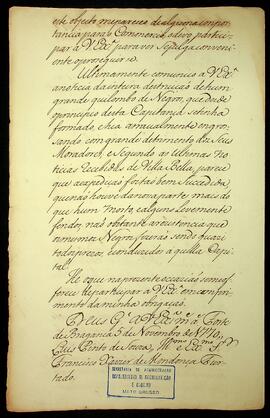 este objecto me pareceo de alguma impor-
tancia para o Commercio, o devo partici-
par a V. Exa. para ver se julga conveni-
ente o proseguir-se.
Ultimamente comunico a V. Exa.
a noticia da futura destruição de hum
grande quilombo de Negros, que desde
o principio desta Capitania se tinha
formado, e hia annualmente engros-
sando com grande detrimento dos Seus
Moradores, e segundo as ultimas no
ticias recebidas de Villa Bella, parece
que a expedição fora tão bem succedida,
que não houve da nossa parte mais do
que hum morto, alguns levemente
feridos, não obstante a resistencia que
os mesmos Negros fizerão sendo quazi
todos prezos, e conduzidos a quella Capi-
tal.
He o que na prezente occazião se me of-
ferece participar a V. Exa. em cumprimen-
to da minha obrigação.
Deos G. a V. Exa. m. a. Forte
de Bragança 5 de Novembro de 1770,
Luis Pinto de Souza, Illmo. e Exmo. Sr.
Francisco Xavier de Mendonça Fur-
tado.
SECRETARIA DE ADMINISTRAÇÃO
DEPARTAMENTO DE DOCUMENTAÇÃO
E ARQUIVO
MATO GROSSO